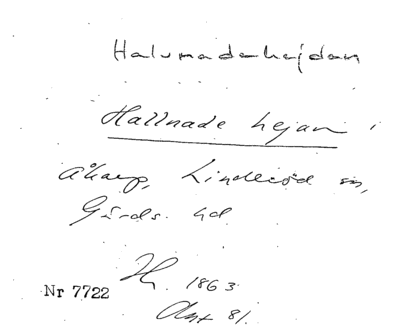 Halvmadehejdan
Hallnade hejan
Åkarp, Linderöd sn,
Gärds hd
1863
Nr 7722
Ant 81.